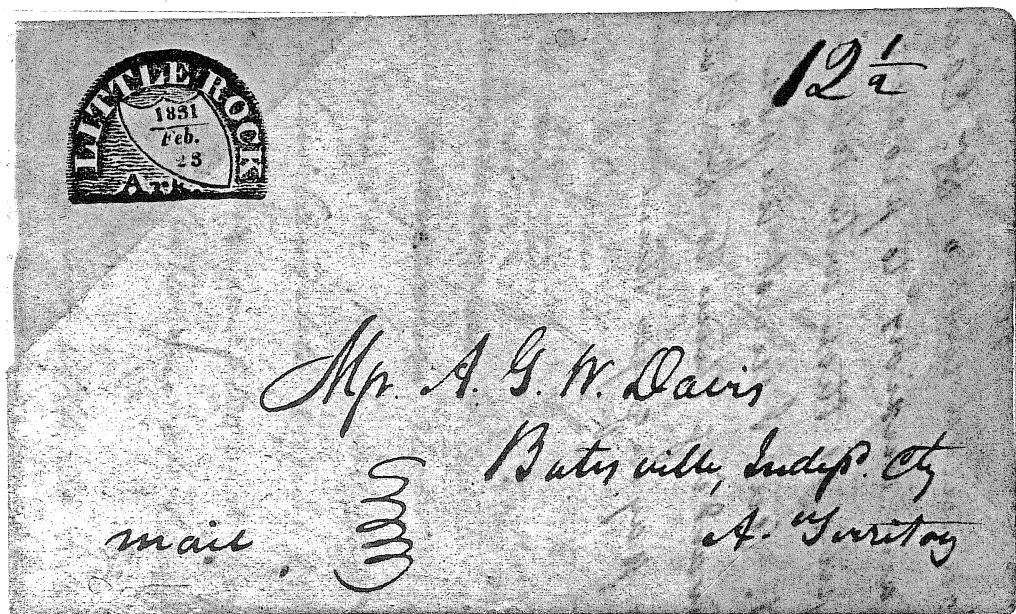 LITTLE ROCK
1831
Feb.
23
Ark.
12 1/2
Mr. A. G. W. Davis
Batesville, Indep. Cty
A. Territory
mail